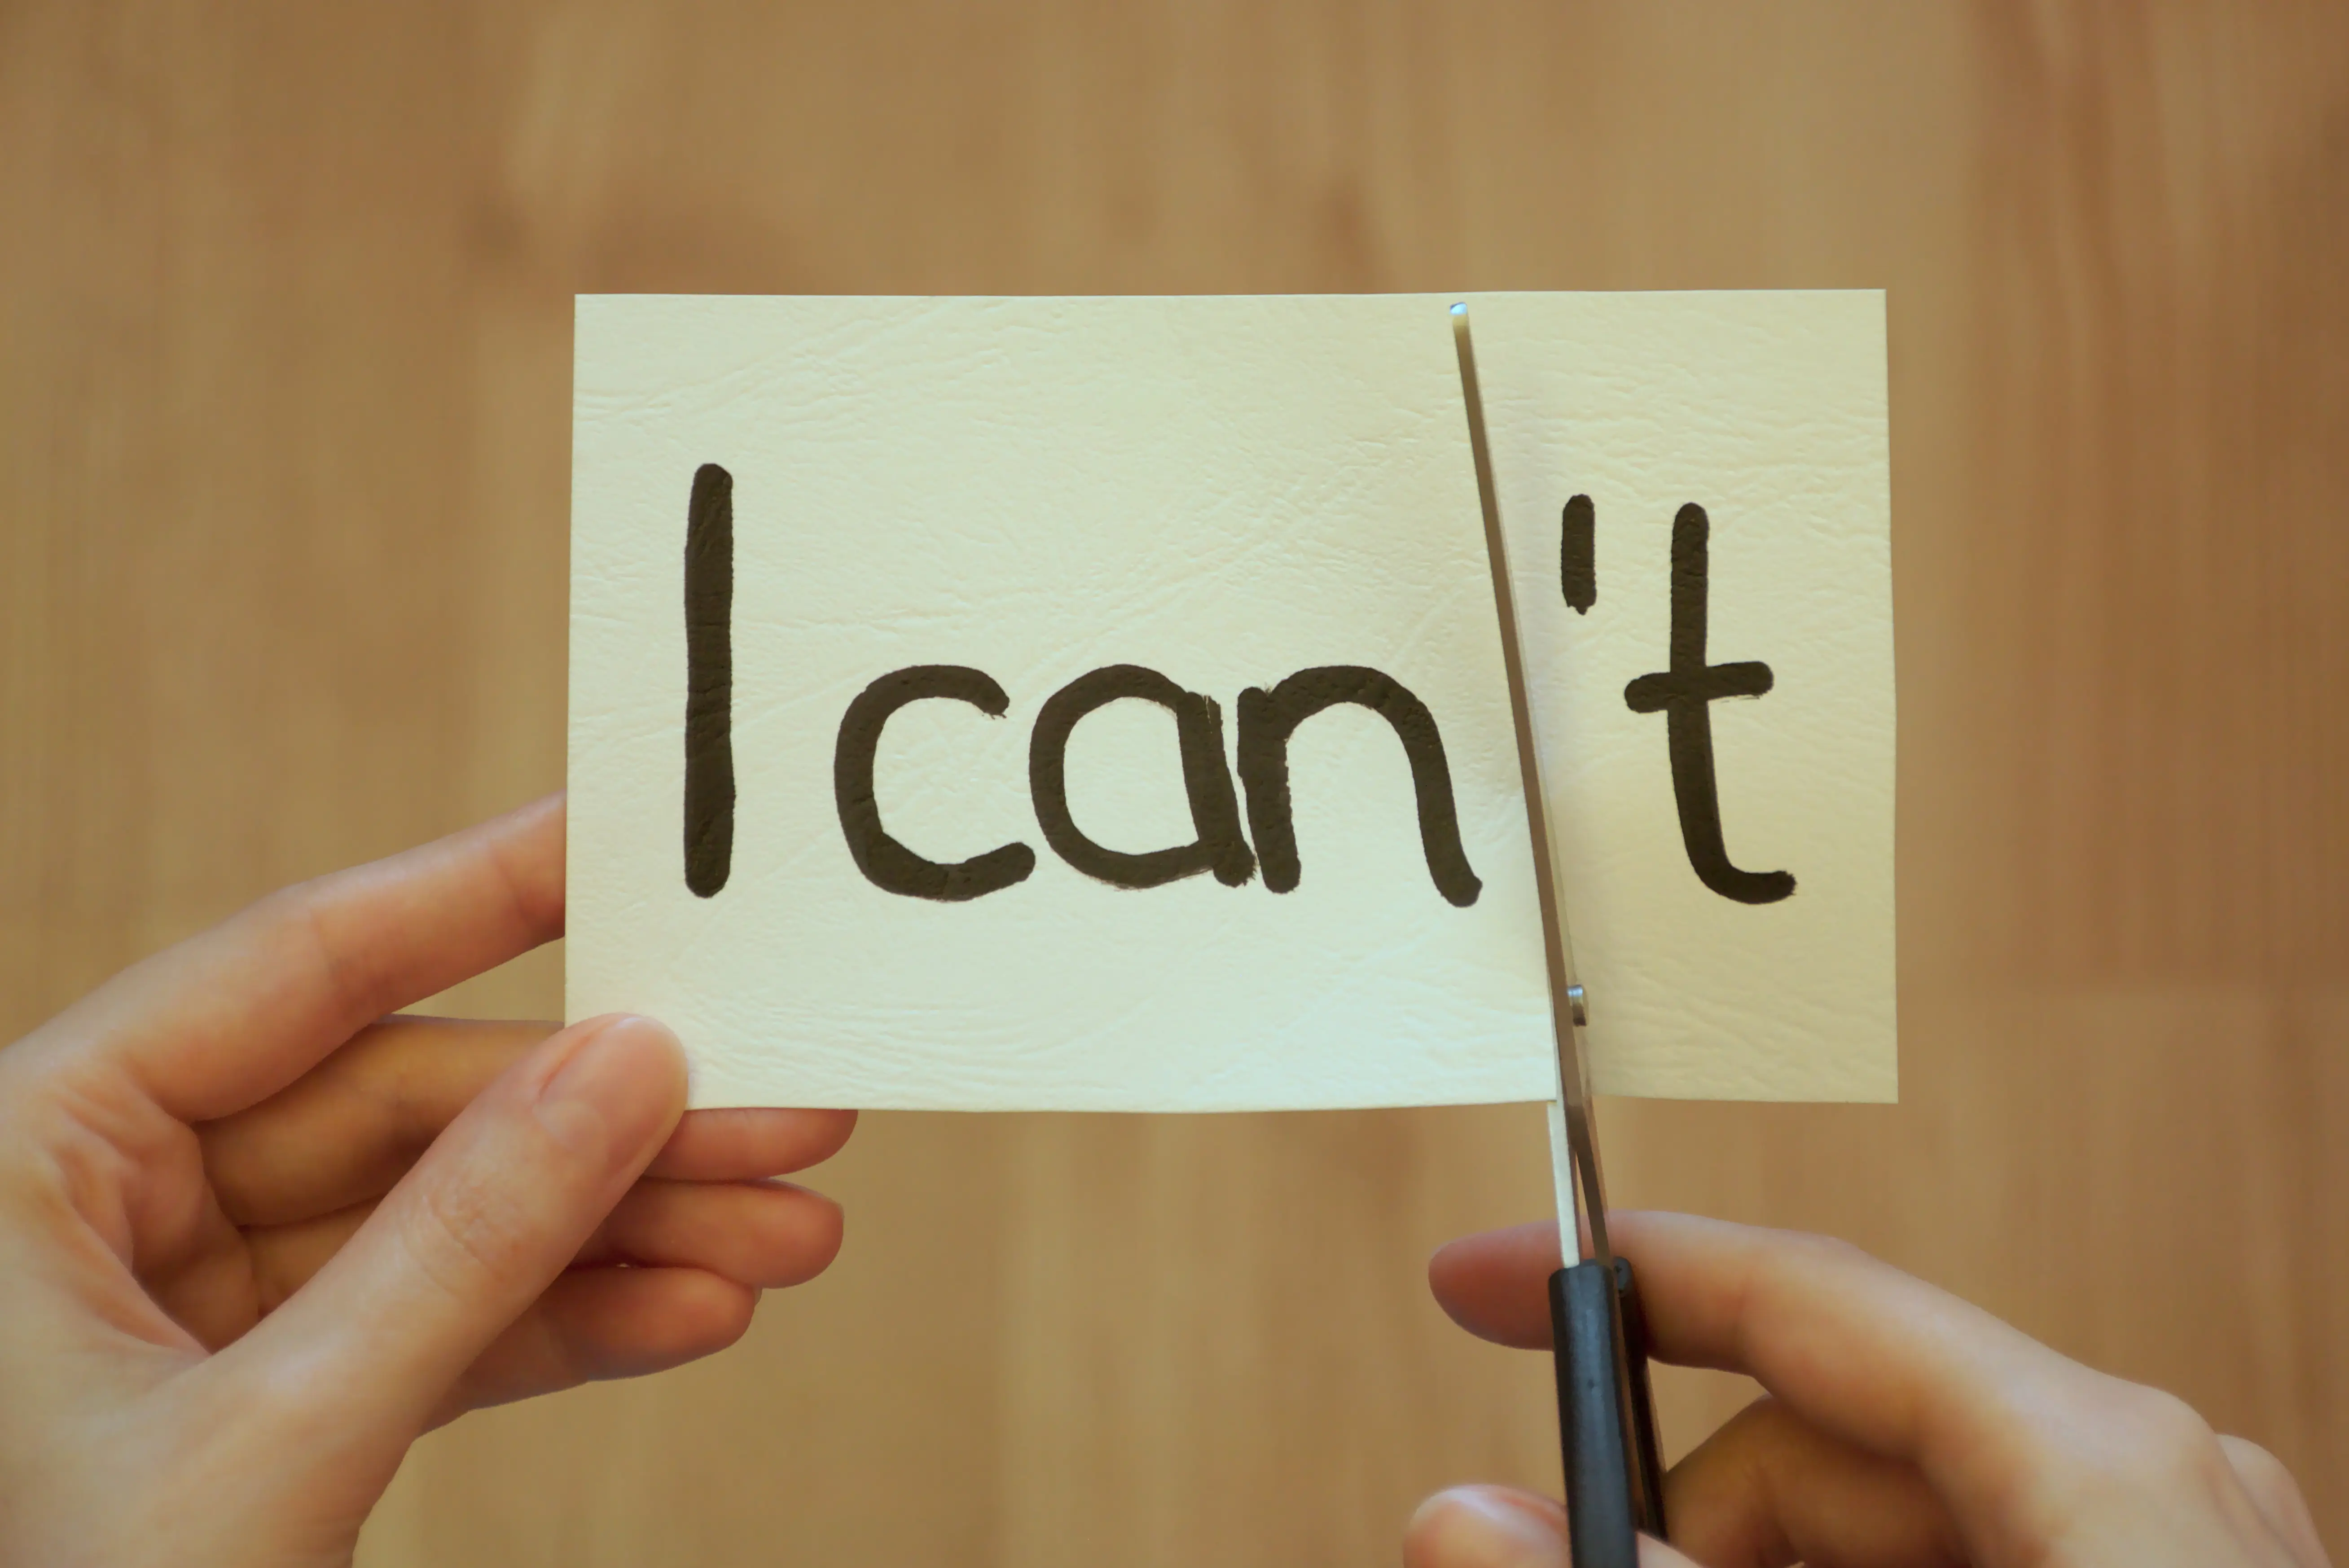 I can't